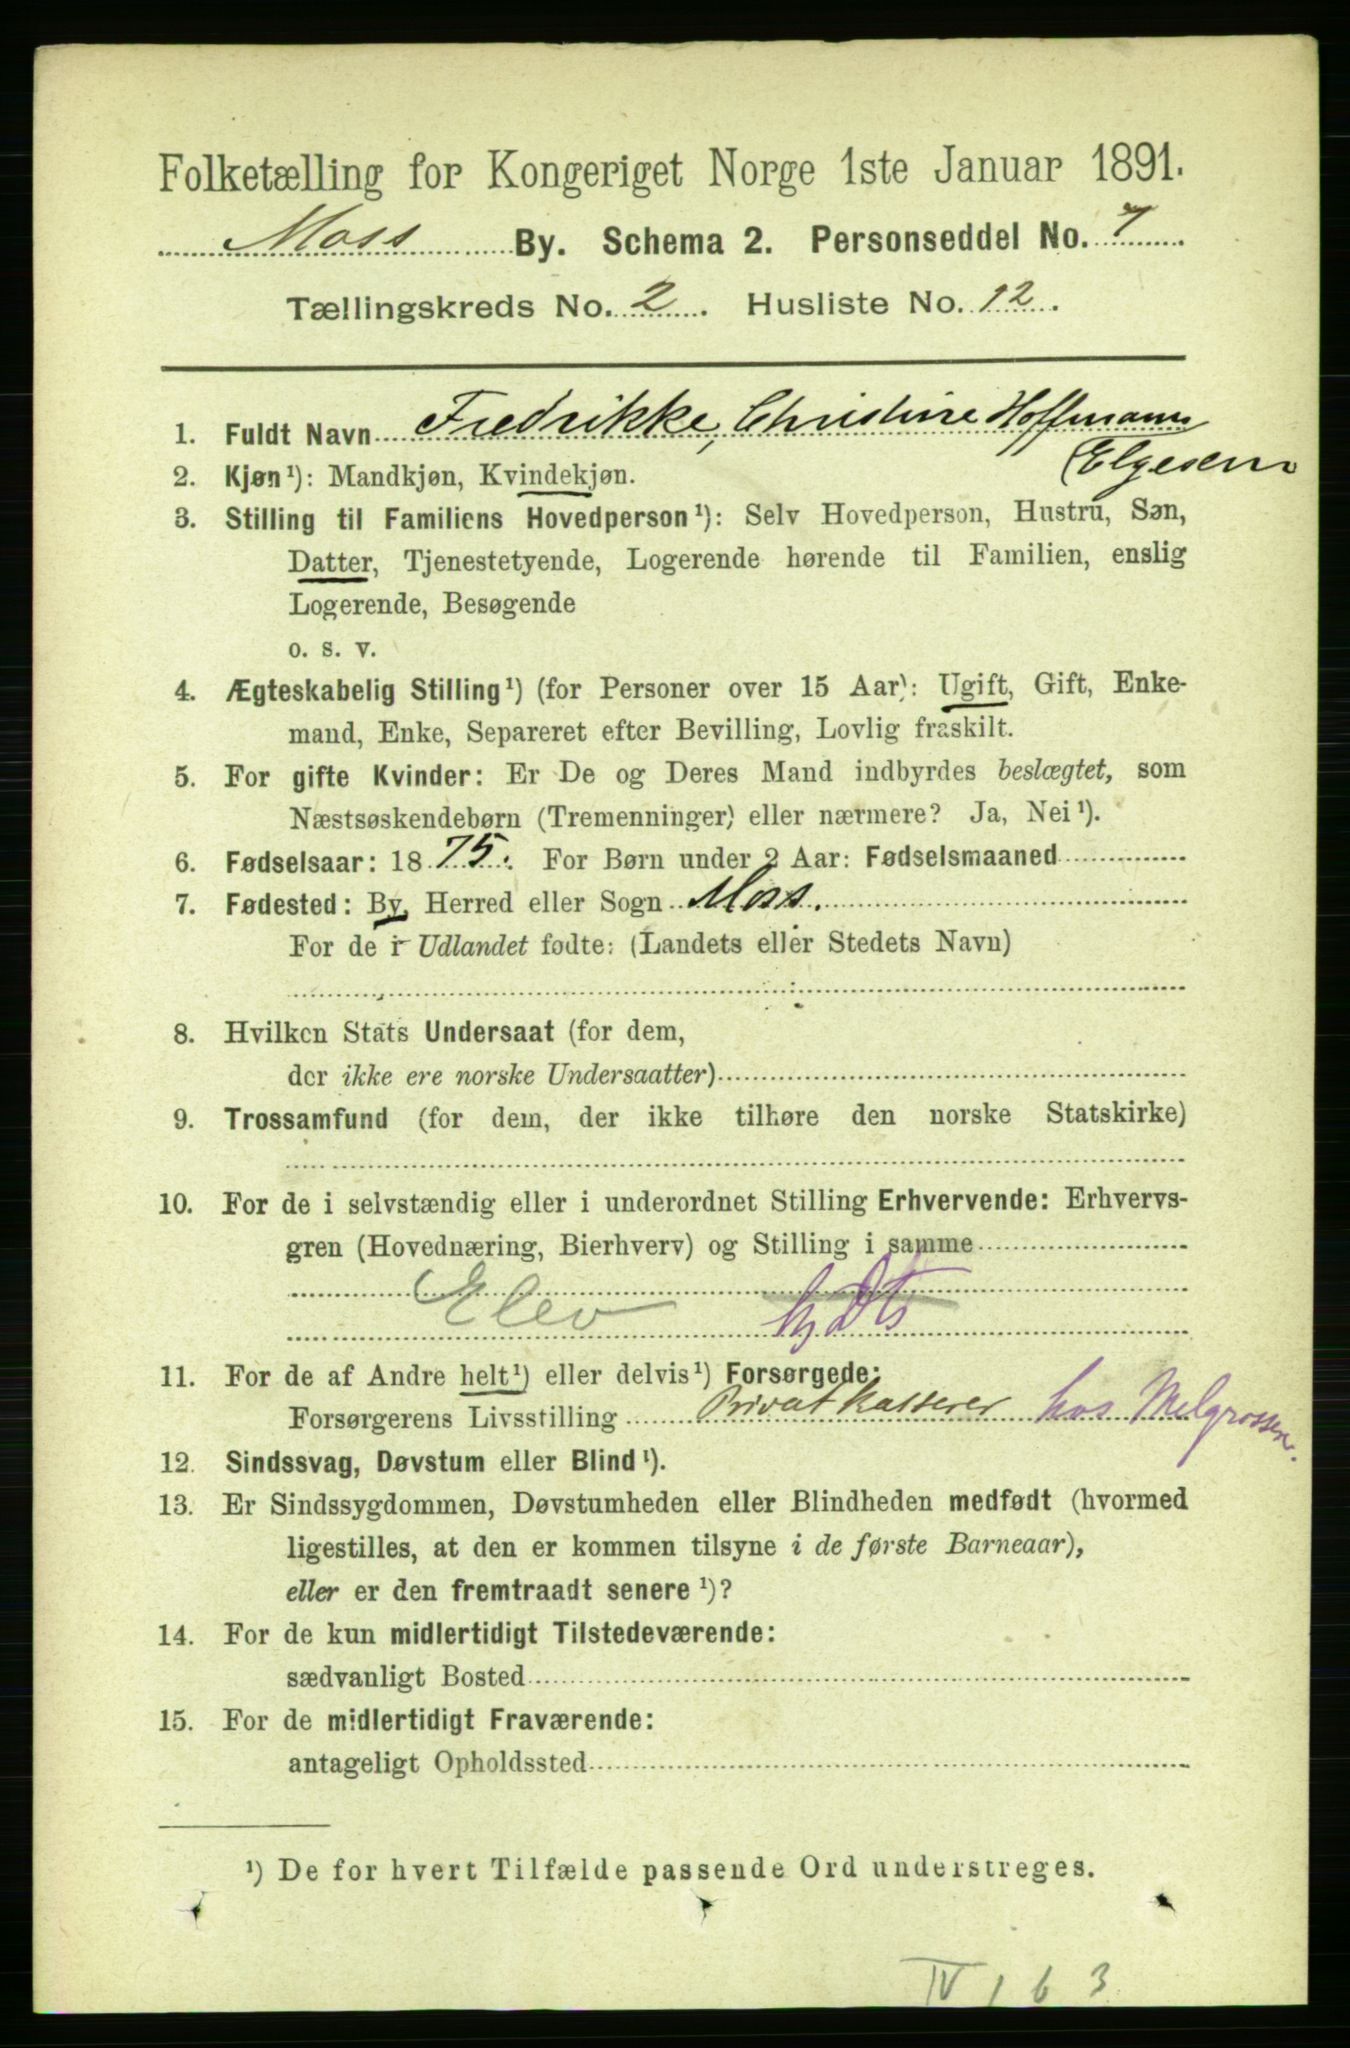 Folketælling for Kongeriget Norge 1ste Januar 1891.
Moss By. Schema 2. Personseddel No. 7
Tællingskreds No. 2. Husliste No. 12.
1. Fuldt Navn Fredrikke, Christine Hoffmann
Elgesen
2. Kjøn¹): Mandkjøn, Kvindekjøn.
3. Stilling til Familiens Hovedperson¹): Selv Hovedperson, Hustru, Søn,
Datter, Tjenestetyende, Logerende hørende til Familien, enslig
Logerende, Besøgende
o. s. v.
4. Ægteskabelig Stilling¹) (for Personer over 15 Aar): Ugift, Gift, Enke-
mand, Enke, Separeret efter Bevilling, Lovlig fraskilt.
5. For gifte Kvinder: Er De og Deres Mand indbyrdes beslægtet, som
Næstsøskendebørn (Tremenninger) eller nærmere? Ja, Nei¹).
6. Fødselsaar: 1875. For Børn under 2 Aar: Fødselsmaaned
7. Fødested: By, Herred eller Sogn Moss.
For de i Udlandet fødte: (Landets eller Stedets Navn)
8. Hvilken Stats Undersaat (for dem,
der ikke ere norske Undersaatter)
9. Trossamfund (for dem, der ikke tilhøre den norske Statskirke)
10. For de i selvstændig eller i underordnet Stilling Erhvervende: Erhvervs-
gren (Hovednæring, Bierhverv) og Stilling i samme
Elev
11. For de af Andre helt¹) eller delvis¹) Forsørgede:
Forsørgerens Livsstilling Privat kasserer hos
12. Sindssvag, Døvstum eller Blind¹).
13. Er Sindssygdommen, Døvstumheden eller Blindheden medfødt (hvormed
ligestilles, at den er kommen tilsyne i de første Barneaar),
eller er den fremtraadt senere¹)?
14. For de kun midlertidigt Tilstedeværende:
sædvanligt Bosted
15. For de midlertidigt Fraværende:
antageligt Opholdssted
¹) De for hvert Tilfælde passende Ord understreges.
IV 1 6 3